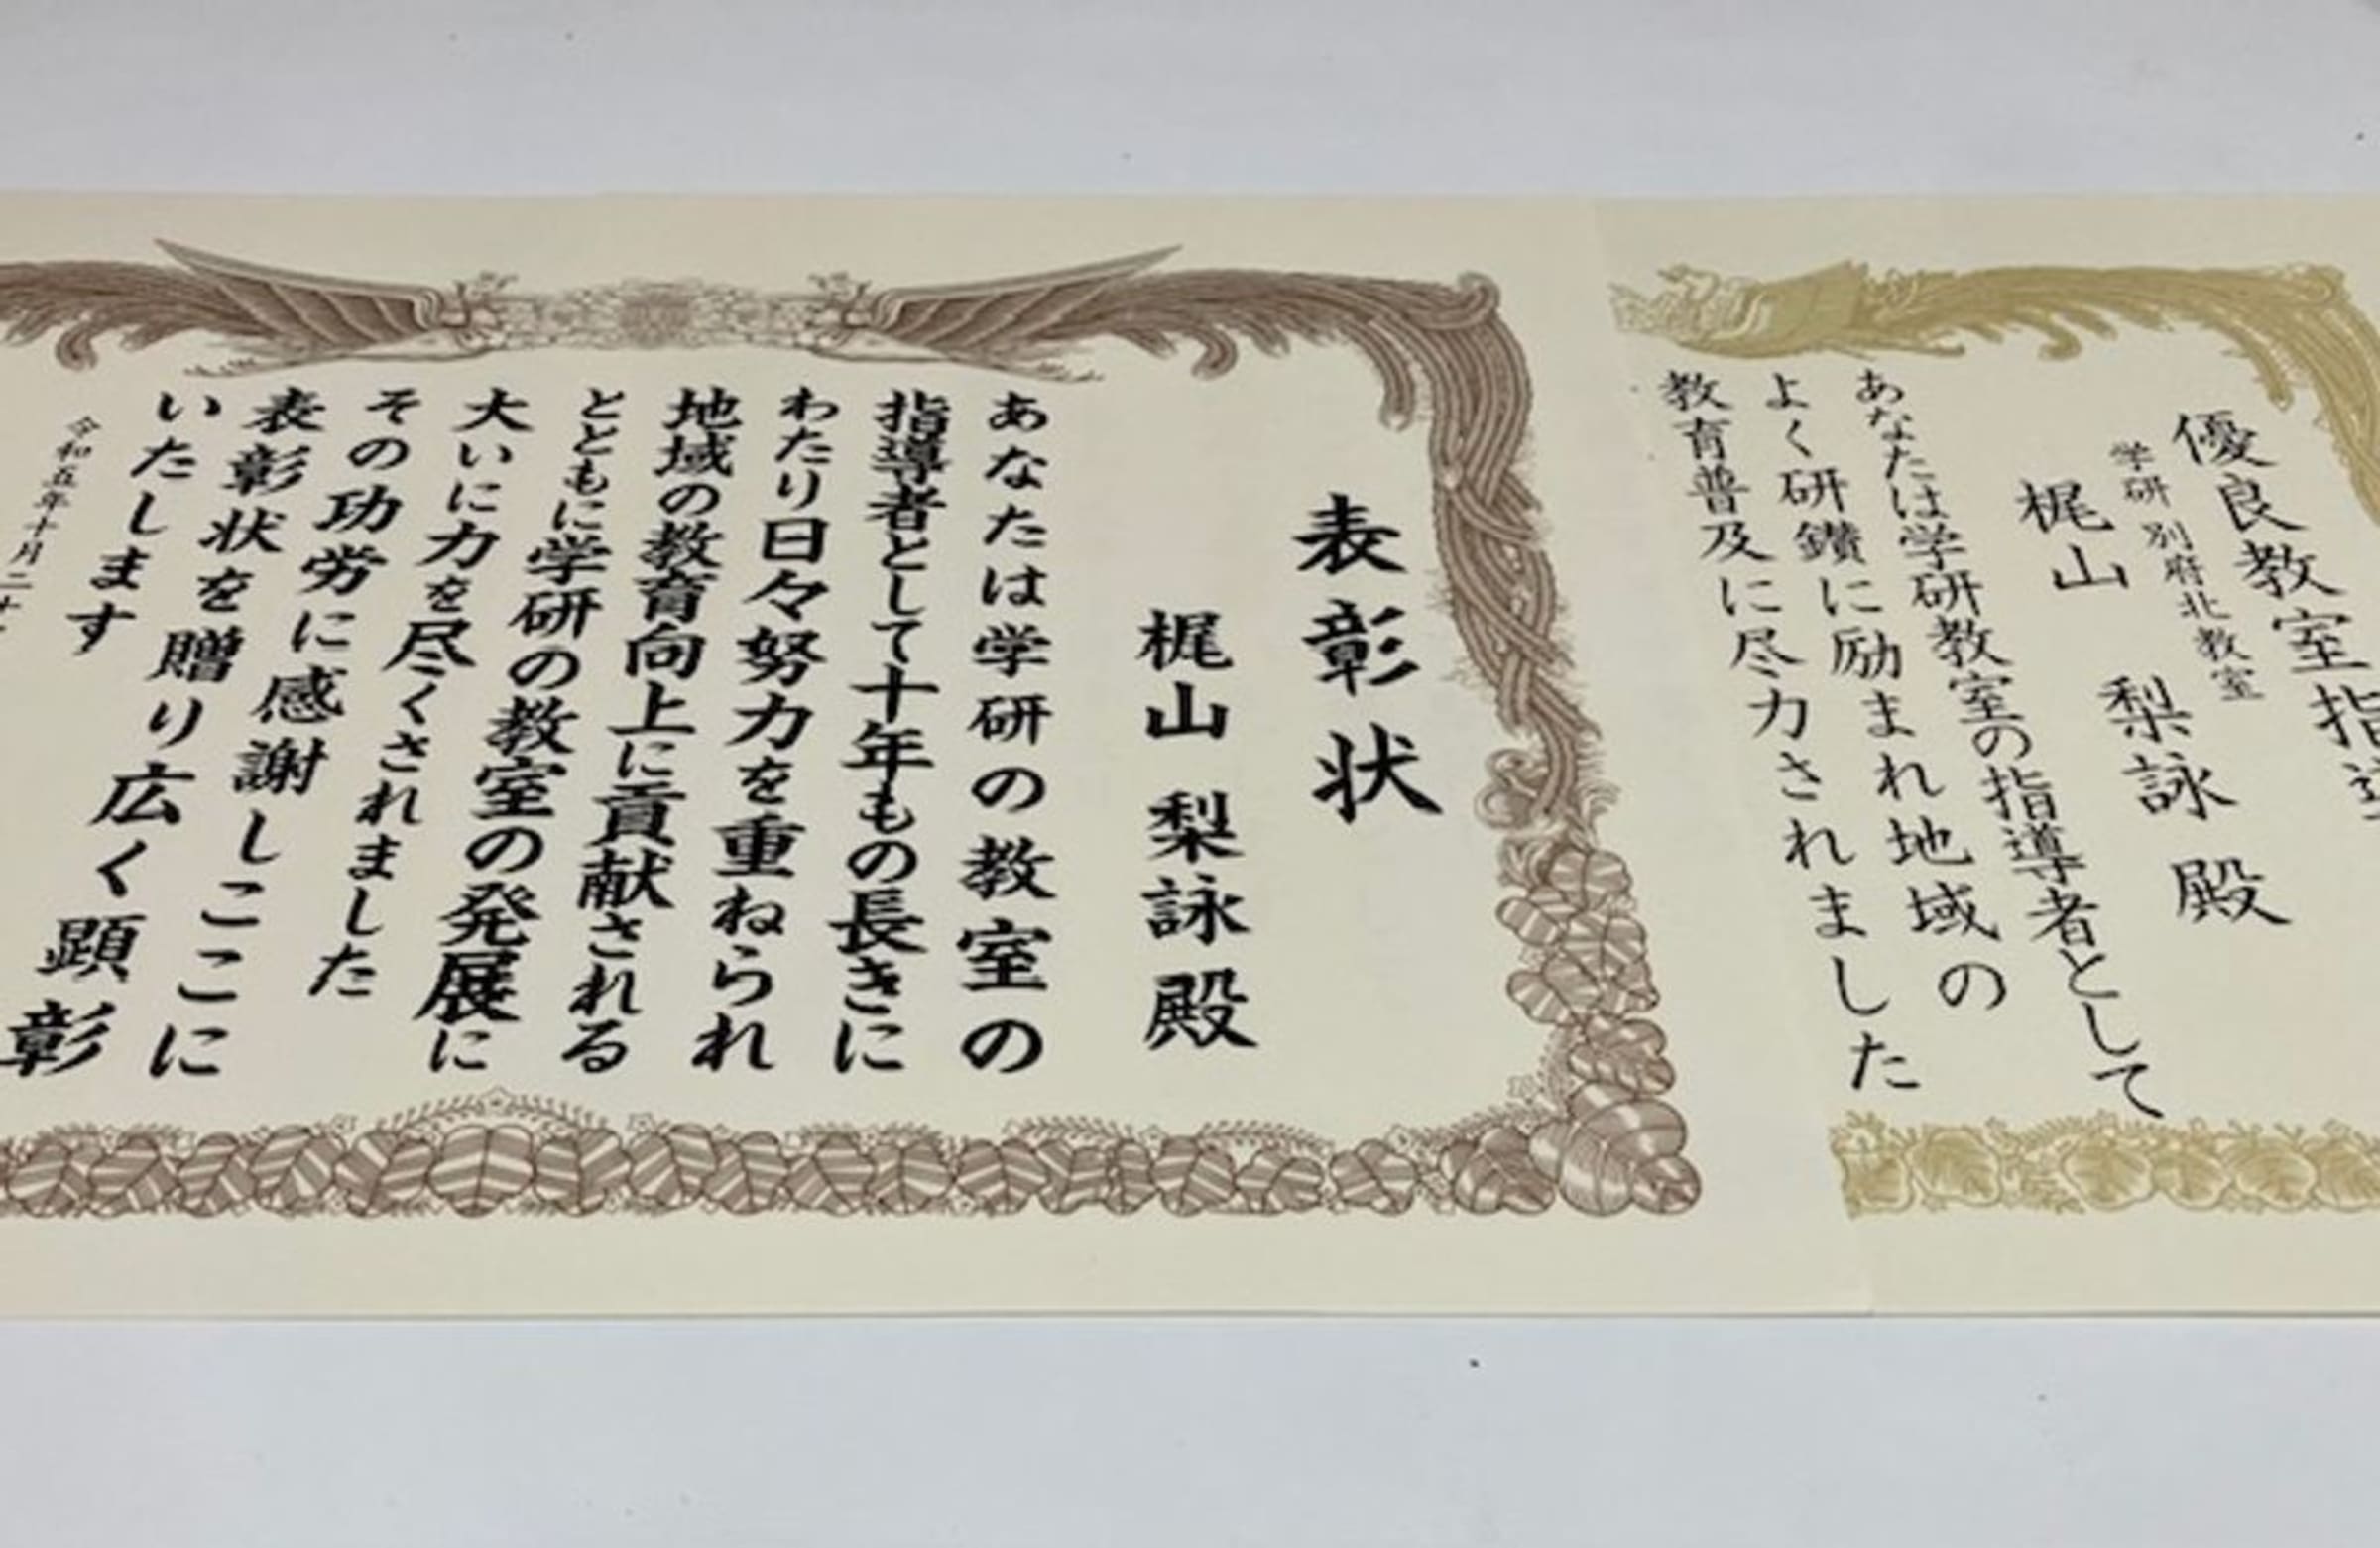 優良教室指
学研 別府北教室
梶山 梨詠 殿
あなたは学研教室の指導者として
よく研鑽に励まれ地域の
教育普及に尽力されました
表彰状
梶山 梨詠 殿
あなたは学研の教室の
指導者として十年もの長きに
わたり日々努力を重ねられ
地域の教育向上に貢献される
とともに学研の教室の発展に
大いに力を尽くされました
その功労に感謝しここに
表彰状を贈り広く顕彰
いたします
令和五年十月二十